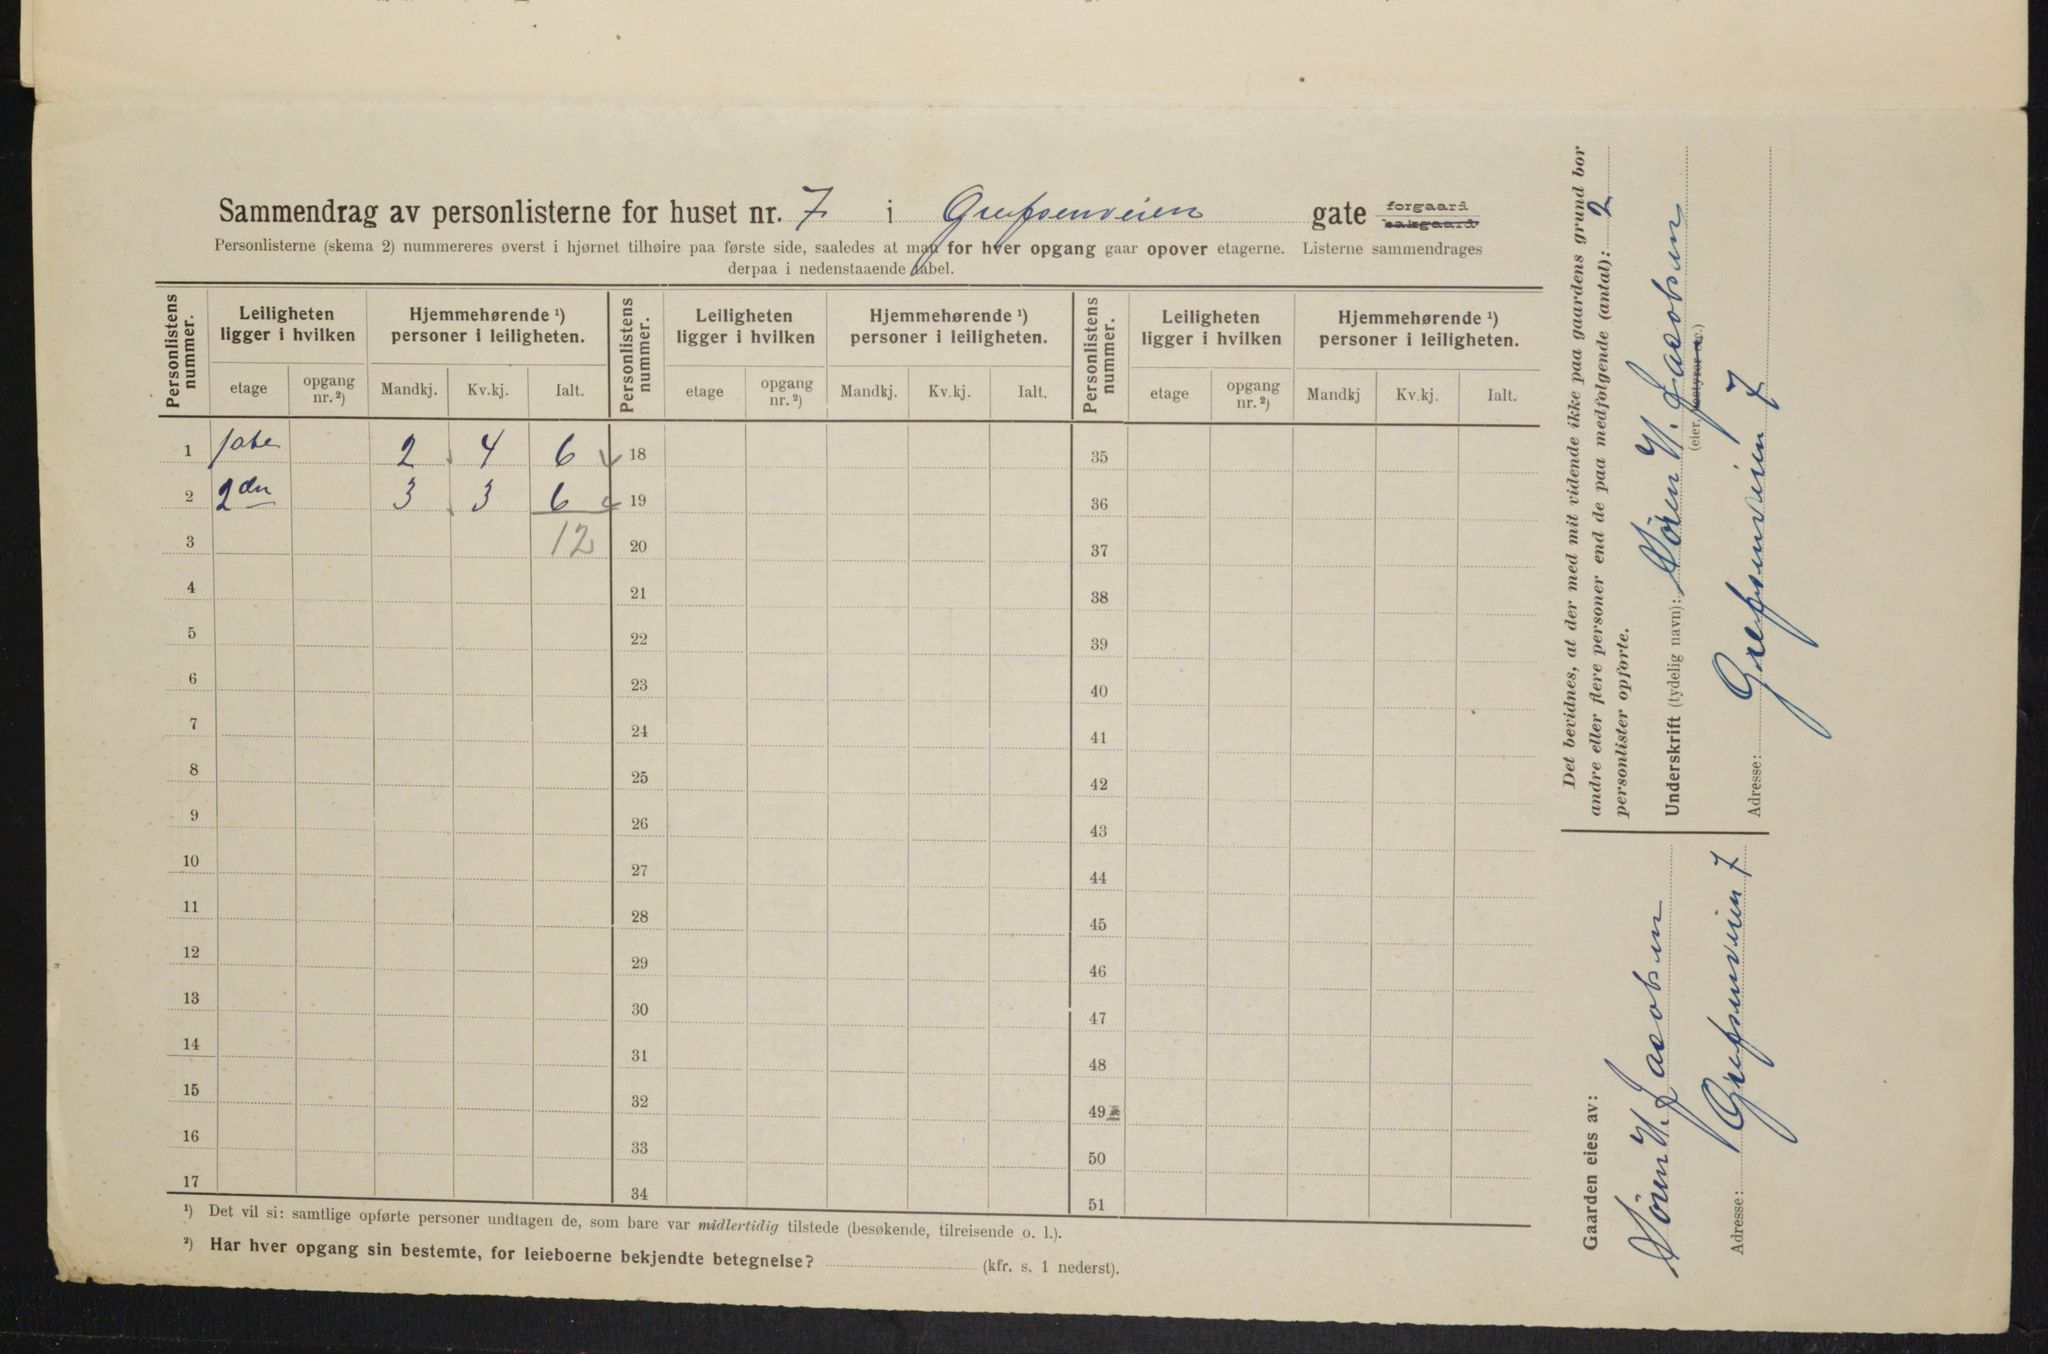 Sammendrag av personlisterne for huset nr. 7 i Grefsenveien gate forgaard bakgaard
Personlisterne (skema 2) nummereres øverst i hjørnet tilhøire paa første side, saaledes at man for hver opgang gaar opover etagerne. Listerne sammendrages
derpaa i nedenstaaende tabel.
Personlistens nummer. Leiligheten ligger i hvilken Hjemmehørende ¹) personer i leiligheten. Personlistens nummer. Leiligheten ligger i hvilken Hjemmehørende ¹) personer i leiligheten. Personlistens nummer. Leiligheten ligger i hvilken Hjemmehørende ¹) personer i leiligheten.
etage opgang nr. ²) Mandkj. Kv.kj. Ialt. etage opgang nr. ²) Mandkj. Kv.kj. Ialt. etage opgang nr. ²) Mandkj Kv.kj. Ialt.
1 1ste 2 4 6 18 35
2 2den 3 3 6 19 36
3 12 20 37
4 21 38
5 22 39
6 23 40
7 24 41
8 25 42
9 26 43
10 27 44
11 28 45
12 29 46
13 30 47
14 31 48
15 32 49
16 33 50
17 34 51
¹) Det vil si: samtlige opførte personer undtagen de, som bare var midlertidig tilstede (besøkende, tilreisende o. l.).
²) Har hver opgang sin bestemte, for leieboerne bekjendte betegnelse? (kfr. s. 1 nederst).
Det bevidnes, at der med mit vidende ikke paa gaardens grund bor
andre eller flere personer end de paa medfølgende (antal): 2
personlister opførte.
Underskrift (tydelig navn): Sören H. Jacobsen
(eier, bestyrer etc.)
Adresse: Grefsenveien 7
Gaarden eies av:
Sören H. Jacobsen
Adresse: Grefsenveien 7